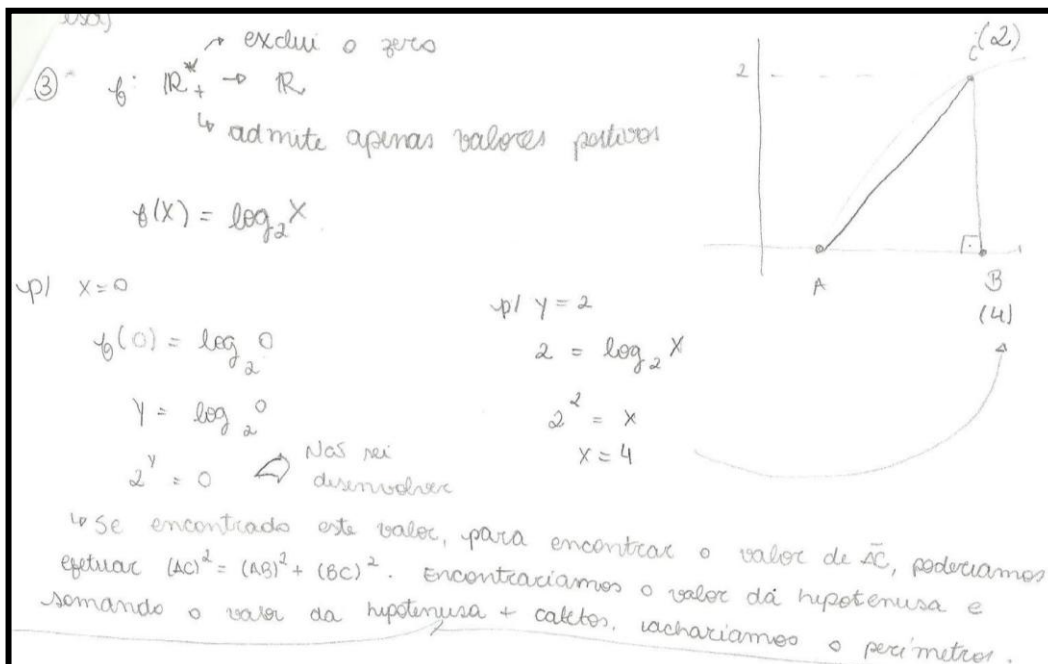 exclui o zero
③ f: ℝ*₊ → ℝ
↳ admite apenas valores positivos
f(x) = log₂x
2
C (2)
A
B
(4)
p/ x=0
f(0) = log₂0
y = log₂0
2^y = 0
Não sei
desenvolver
p/ y=2
2 = log₂x
2² = x
x = 4
↳ se encontrado este valor, para encontrar o valor de AC, poderíamos
efetuar (AC)² = (AB)² + (BC)². Encontraríamos o valor da hipotenusa e
somando o valor da hipotenusa + catetos, acharíamos o perímetros.